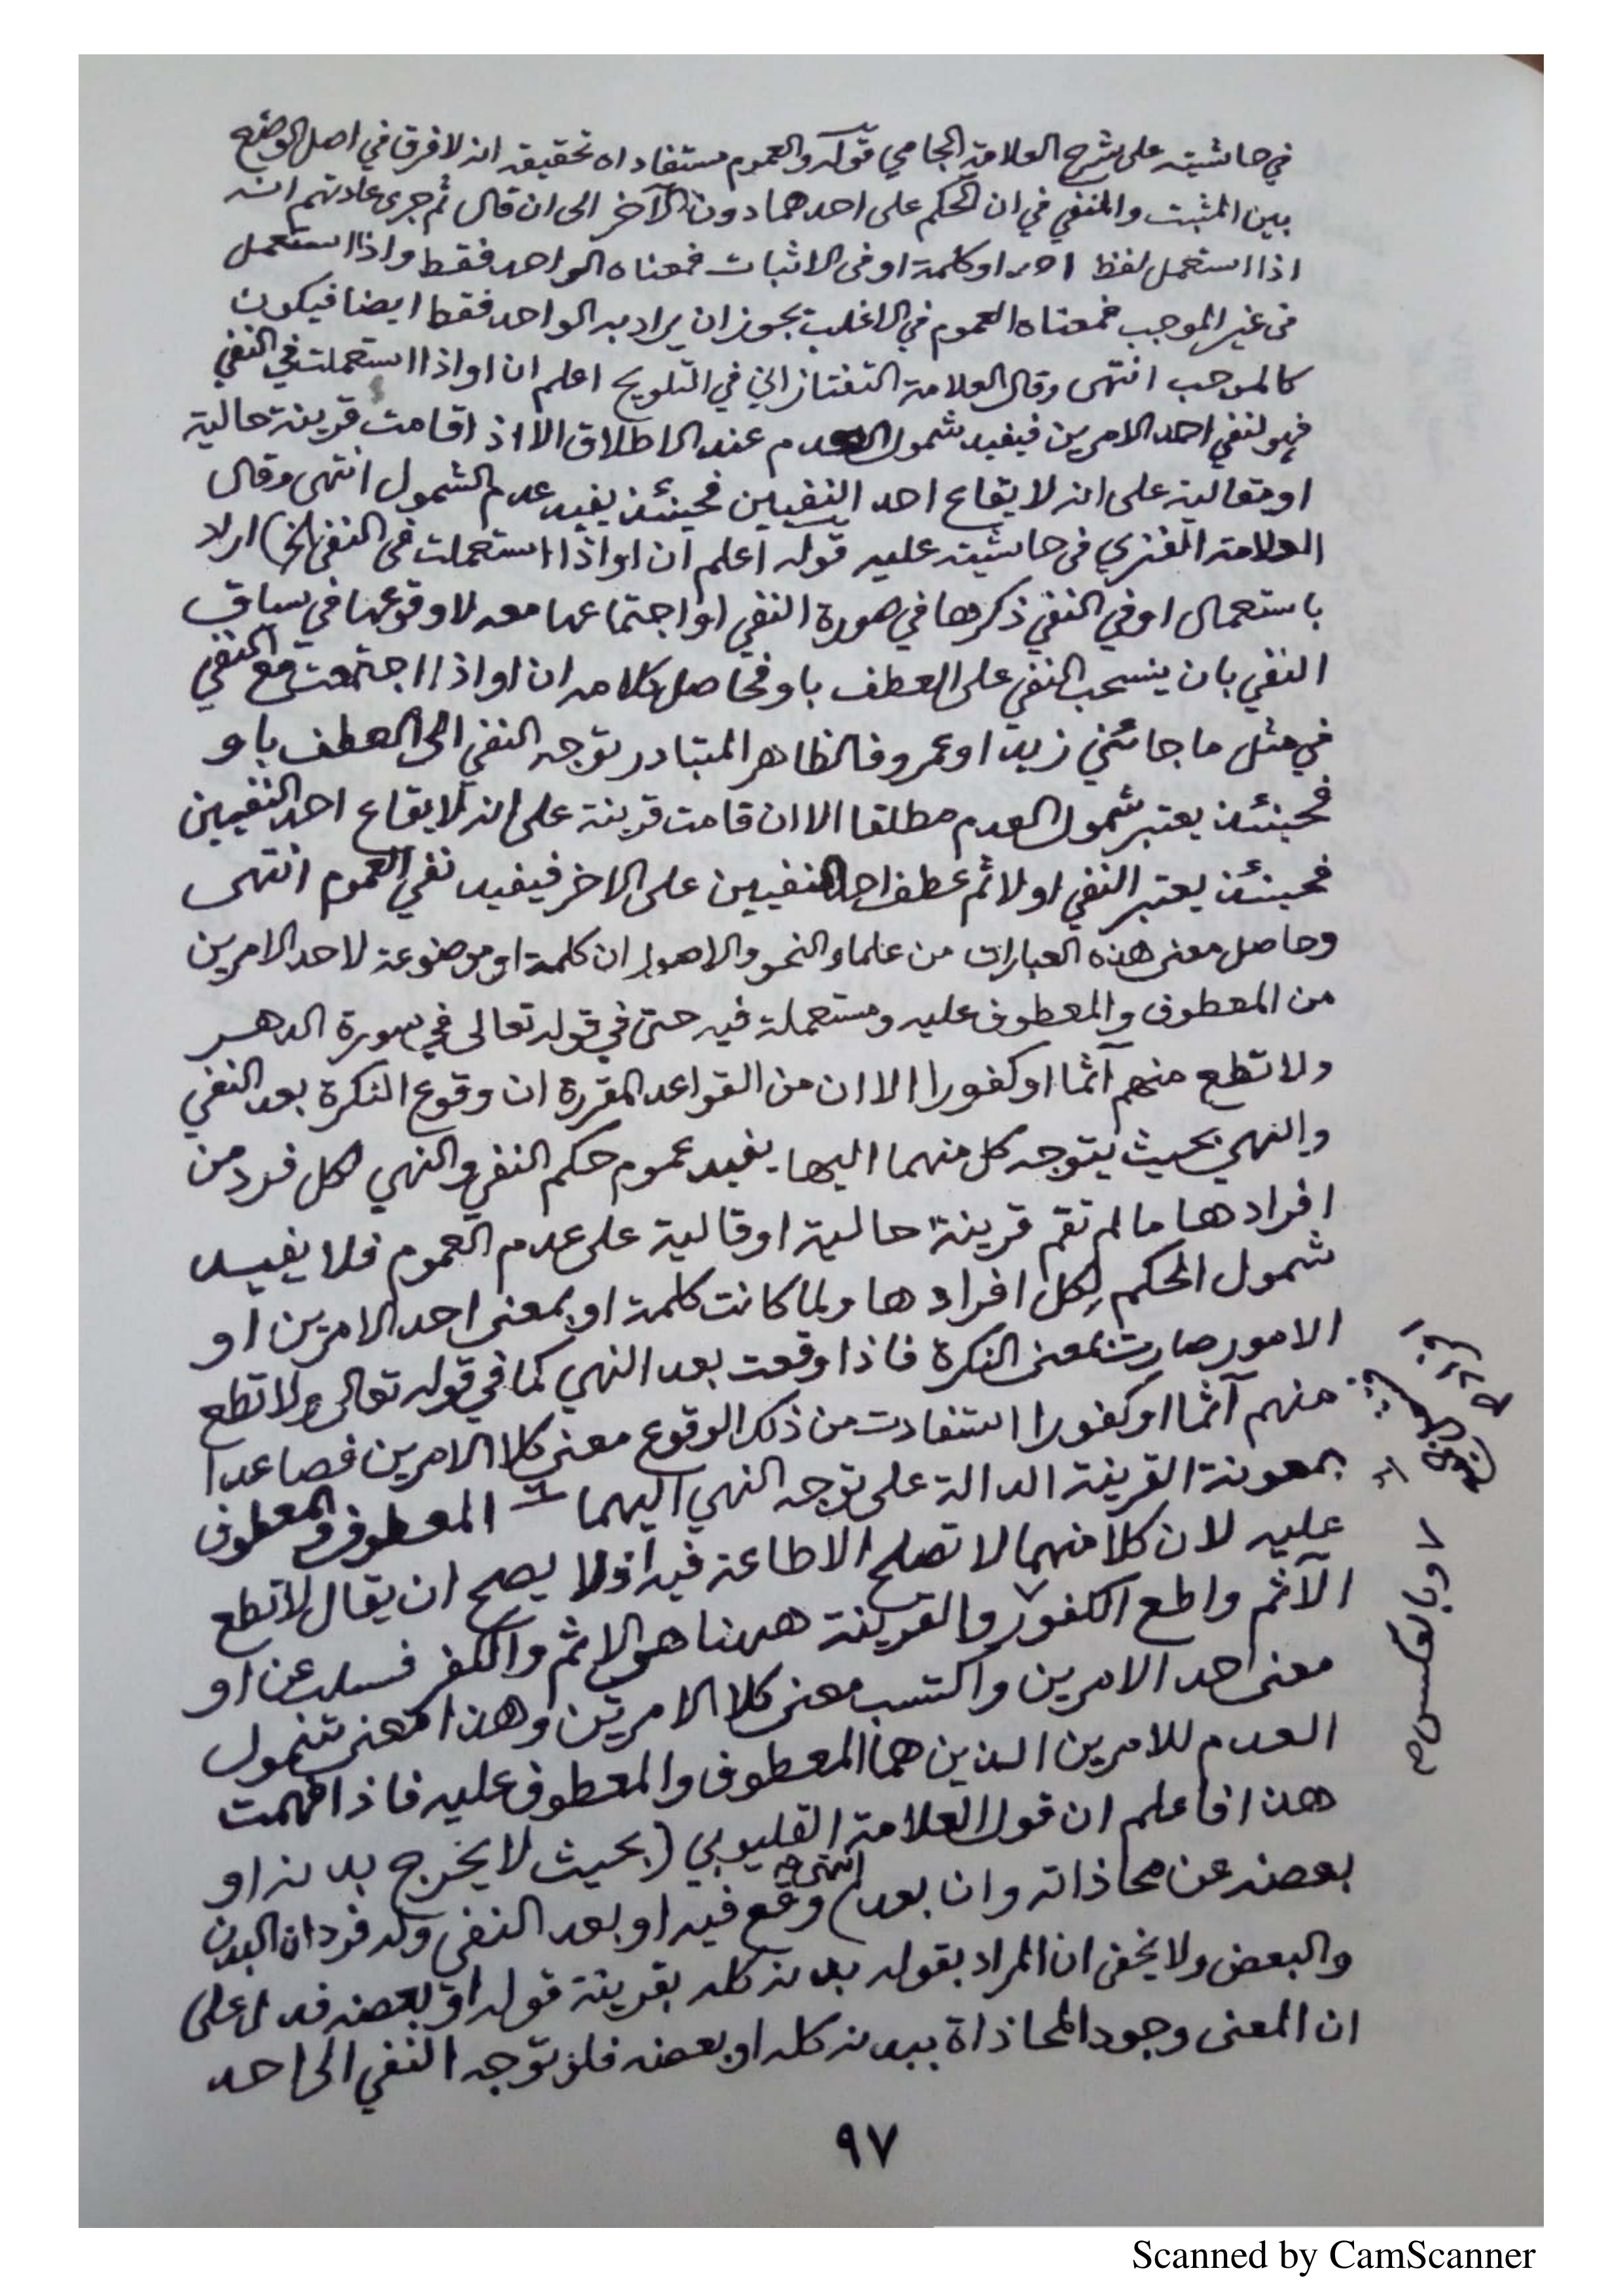 في حاشيته على شرح العلامة الجامي قوله والعموم مستفاد اه تحقيقه انه لا فرق في اصل الوضع
بين المثبت والمنفي في ان الحكم على احدهما دون الآخر الى ان قال ثم جرى عادتهم انه
اذا استعمل لفظ احد او كلمة او في الاثبات فمعناه الواحد فقط واذا استعمل
في غير الموجب فمعناه العموم في الاغلب يجوز ان يراد به الواحد فقط ايضا فيكون
كالموجب انتهى وقال العلامة التفتازاني في التلويح اعلم ان او اذا استعملت في النفي
فهو لنفي احد الامرين فيفيد شمول العدم عند الاطلاق الا اذ اقامت قرينة حالية
او مقالية على انه لا يقاع احد النفيين فحينئذ يفيد عدم الشمول انتهى وقال
العلامة الفنري في حاشيته عليه قوله اعلم ان او اذا استعملت في النفي الخ) اراد
باستعمال او في النفي ذكرها في صورة النفي او اجتماعها معه لا وقوعها في سياق
النفي بان ينسحب النفي على العطف باو فحاصل كلامه ان او اذا اجتمعت مع النفي
في مثل ما جائني زيد او عمرو فالظاهر المتبادر توجه النفي الى العطف باو
فحينئذ يعتبر شمول العدم مطلقا الا ان قامت قرينة على انه لايقاع احد النفيين
فحينئذ يعتبر النفي اولا ثم عطف احد النفيين على الاخر فيفيد نفي العموم انتهى
وحاصل معنى هذه العبارات من علماء النحو والاصول ان كلمة او موضوعة لاحد الامرين
من المعطوف والمعطوف عليه ومستعملة فيه حتى في قوله تعالى في سورة الدهر
ولا تطع منهم آثما او كفورا الا ان من القواعد المقررة ان وقوع النكرة بعد النفي
والنهي بحيث يتوجه كل منهما اليها يفيد عموم حكم النفي والنهي لكل فرد من
افرادها ما لم تقم قرينة حالية او قالية على عدم العموم فلا يفيد
شمول الحكم لكل افرادها ولما كانت كلمة او بمعنى احد الامرين او
الامور صارت بمعنى النكرة فاذا وقعت بعد النهي كما في قوله تعالى ولا تطع
منهم آثما او كفورا استفادت من ذلك الوقوع معنى كلا الامرين فصاعدا
بمعونة القرينة الدالة على توجه النهي اليهما المعطوف والمعطوف
عليه لان كلا منهما لا تصلح الاطاعة فيه اذ لا يصح ان يقال لا تطع
الآثم واطع الكفور والقرينة ههنا هو الاثم والكفر فسلب عن او
معنى احد الامرين واكتسب معنى كلا الامرين وهذا معنى شمول
العدم للامرين الذين هما المعطوف والمعطوف عليه فاذا فهمت
هذا فاعلم ان قول العلامة القليوبي (بحيث لا يخرج بدنه او
بعضه عن محاذاته وان بعد) انتهى وقع فيه او بعد النفي وله فردان البدن
والبعض ولا يخفى ان المراد بقوله بدنه كله بقرينة قوله او بعضه فدل على
ان المعنى وجود المحاذاة ببدنه كله او بعضه فلو توجه النفي الى احد
او بالعكس م
٩٧
Scanned by CamScanner